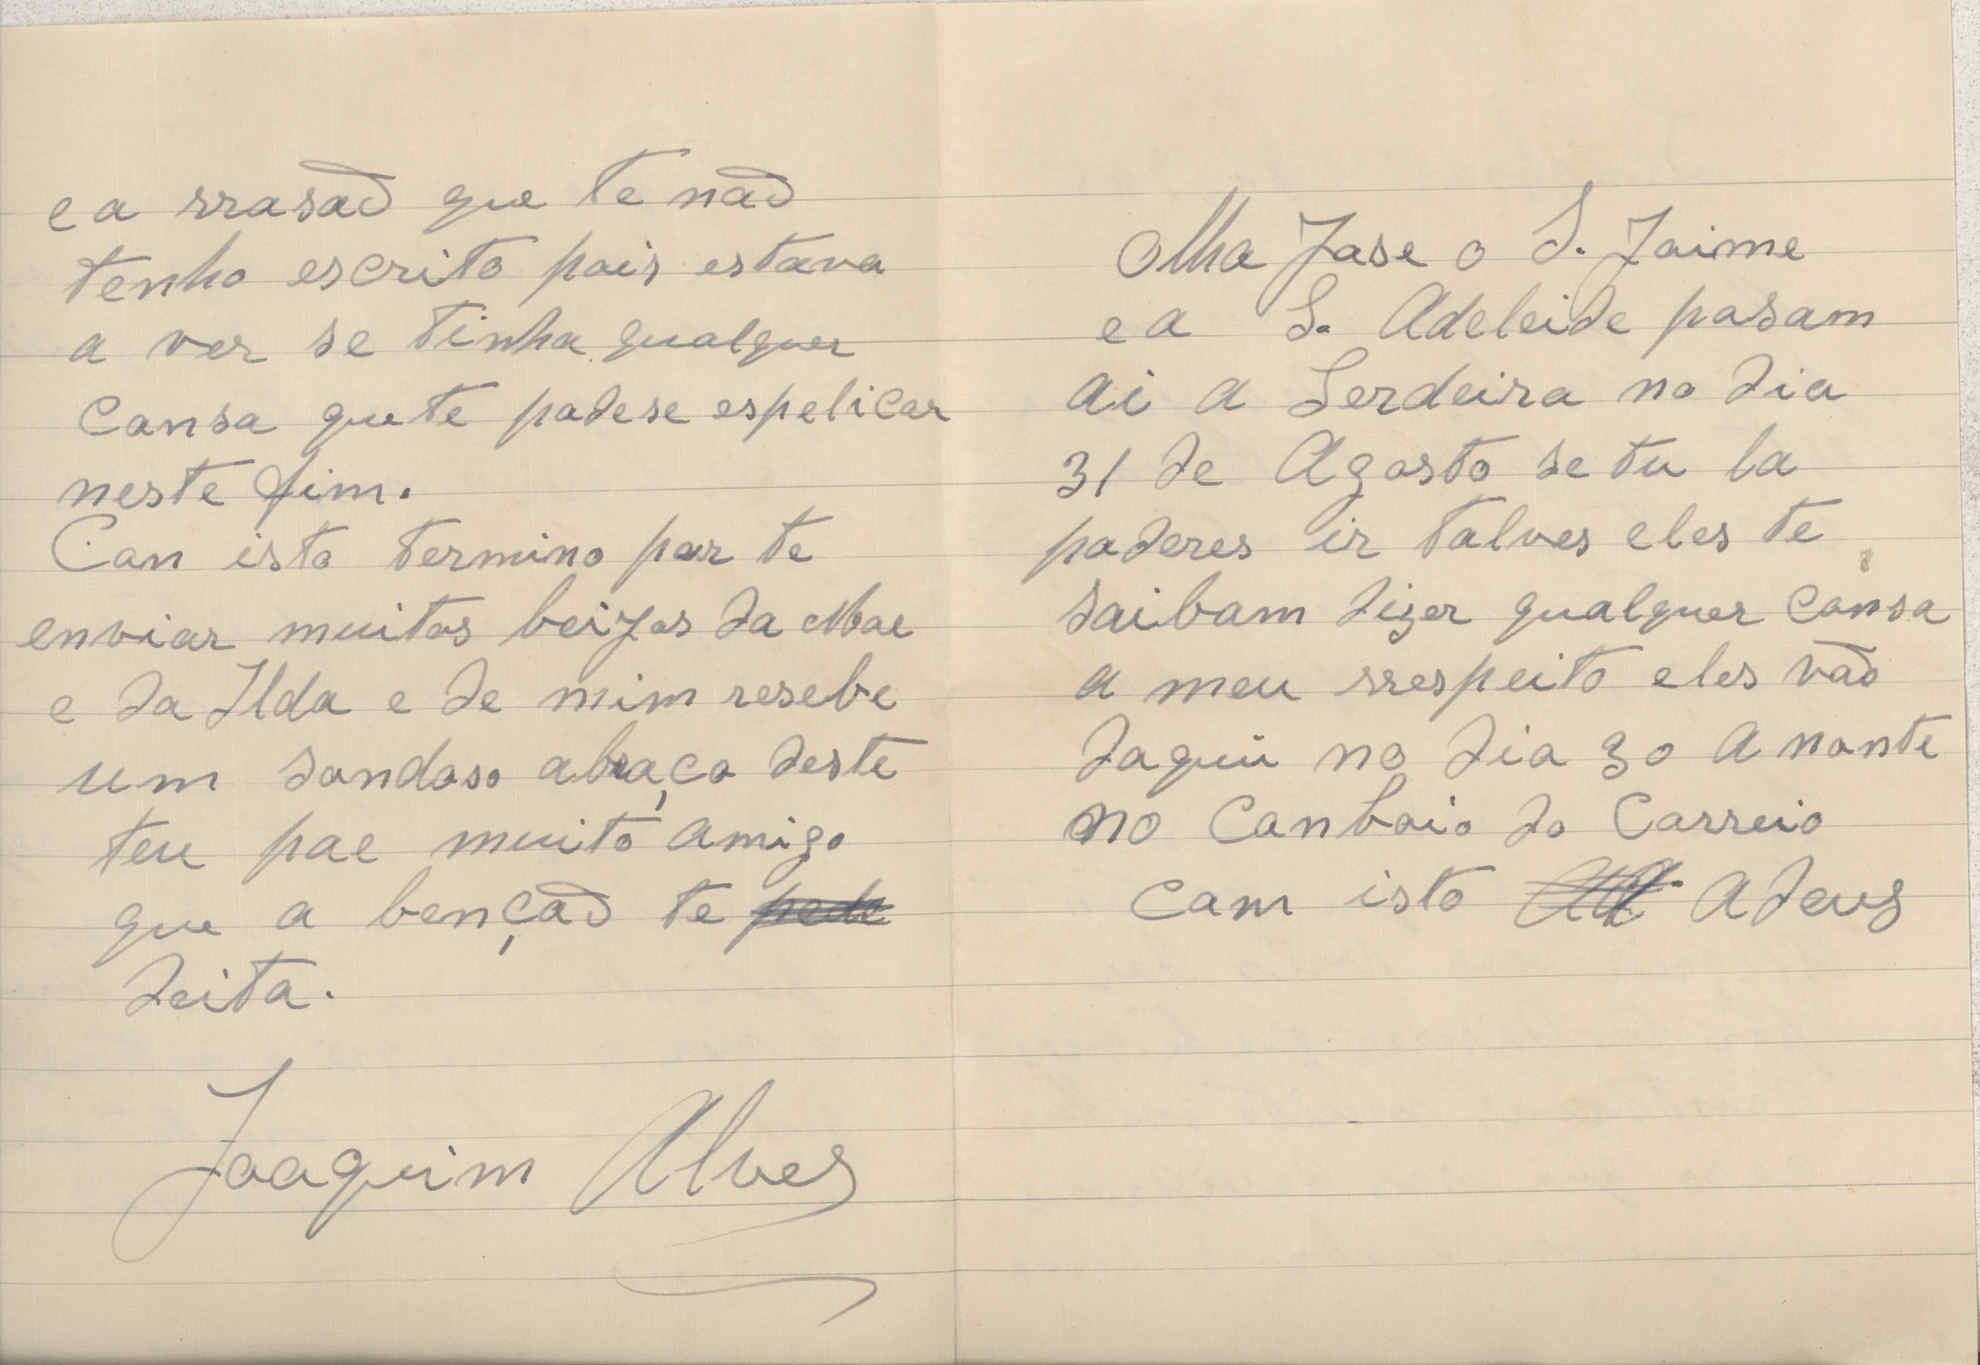 e a rrasaõ que te naõ
tenho escrito pois estava
a ver se tinha qualquer
cousa que te podese espelicar
neste fim.
Con isto termino por te
enviar muitos beijos da Mae
e da Ilda e de mim resebe
um soudoso abraço deste
teu pae muito amigo
que a bençaõ te pede
deita.
Joaquim Alves
Olha Jose o S. Jaime
e a S. Adeleide pasam
ai a Serdeira no dia
31 de Agosto se tu la
poderes ir talves eles te
saibam dizer qualquer cousa
a meu rrespeito eles vaõ
daqui no dia 30 a noute
no Conboio do Correio
Com isto Adeus